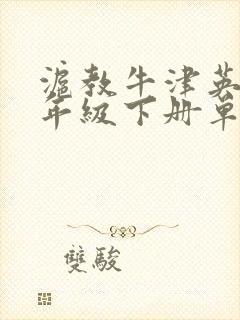 滬教牛津英
年級下册單
雙駿